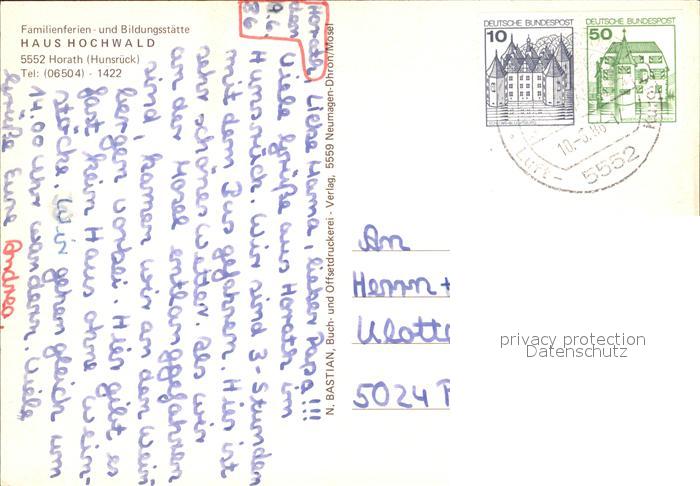 Familienferien- und Bildungsstätte
HAUS HOCHWALD
5552 Horath (Hunsrück)
Tel: (06504) - 1422
Horath,
den
9.6.
86
Liebe Mama, lieber Papa!!!
Viele Grüße aus Horath im
Hunsrück. Wir sind 3-Stunden
mit dem Bus gefahren. Hier ist
sehr schönes Wetter. Als wir
an der Mosel entlanggefahren
sind, kamen wir an den Wein-
bergen vorbei. Hier gibt es
fast kein Haus ohne Wein-
stöcke. Wir gehen gleich um
14.00 Uhr wandern. Viele
Grüße Eure Andrea.
N. BASTIAN, Buch- und Offsetdruckerei - Verlag, 5559 Neumagen-Dhron/Mosel
DEUTSCHE BUNDESPOST
10
DEUTSCHE BUNDESPOST
50
5552
An
Herrn +
Klott
5024 P
privacy protection
Datenschutz